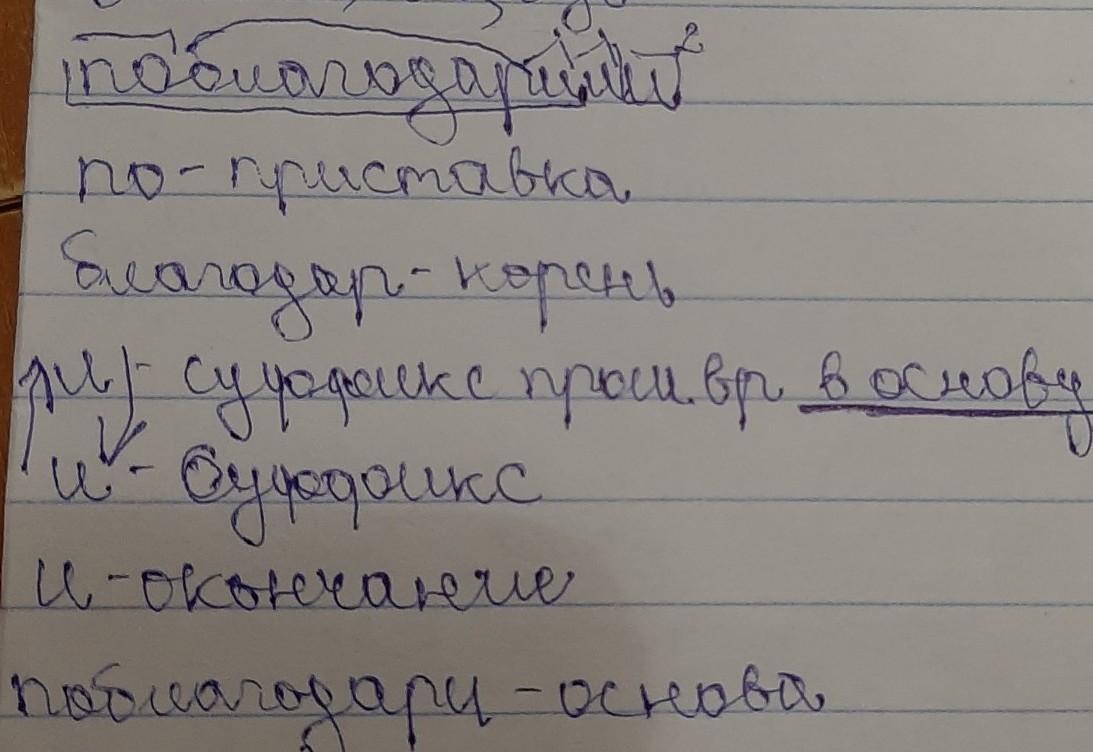 поблагодарили²
по - приставка
благодар - корень
л - суффикс прош. вр в основу
и - суффикс
и - окончание
поблагодари - основа